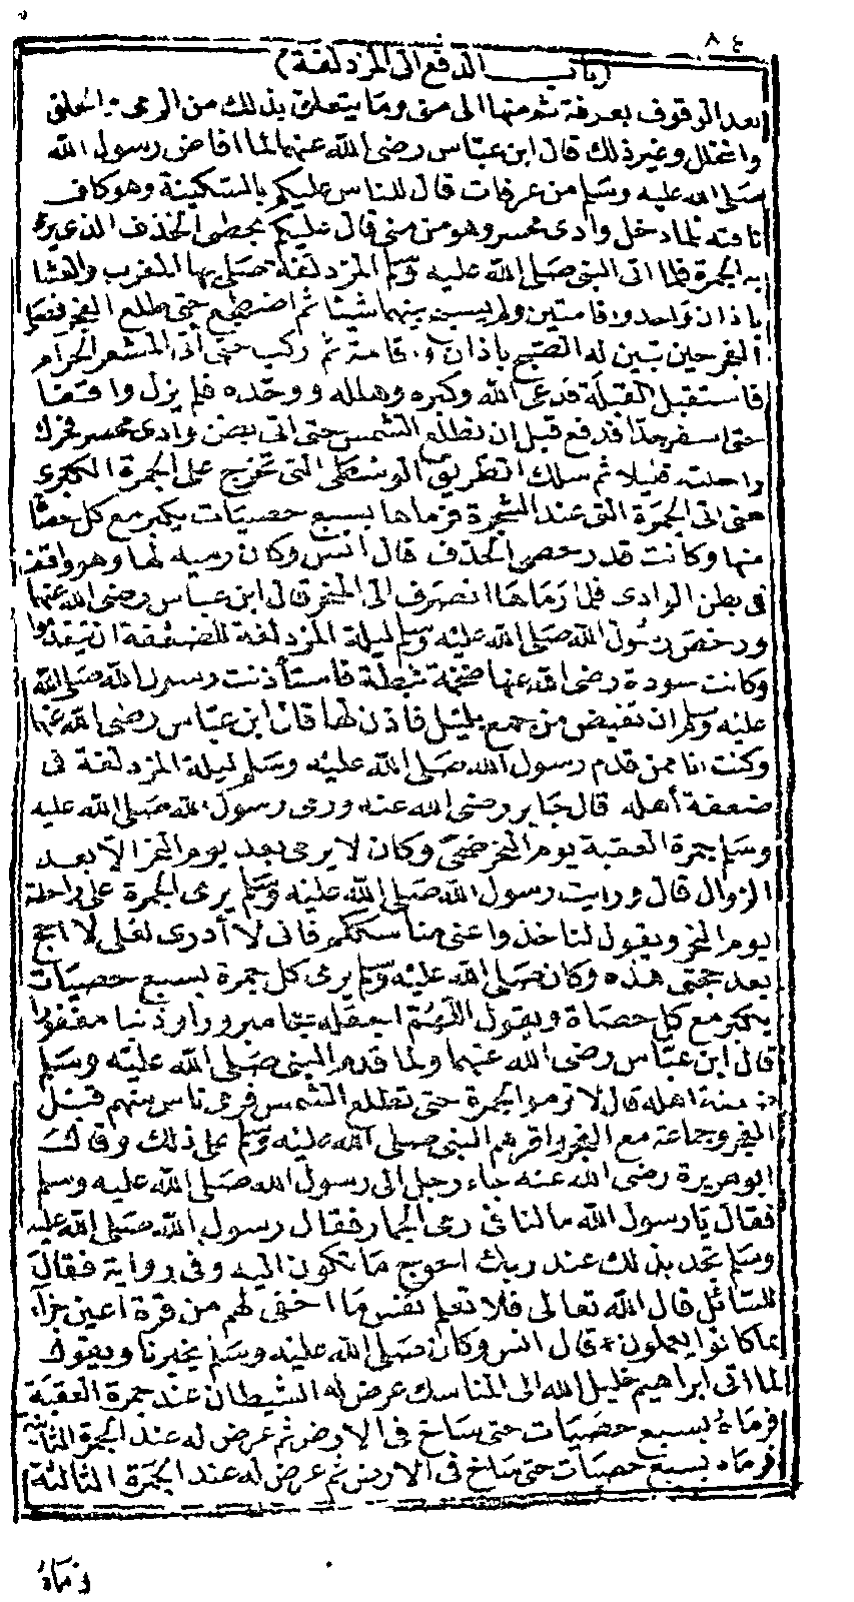 ٨٤
(باب الدفع الى المزدلفة)
بعد الوقوف بعرفة ثم منها الى منى وما يتعلق بذلك من الرمى والحلق
والتحلل وغير ذلك قال ابن عباس رضى الله عنهما لما افاض رسول الله
صلى الله عليه وسلم من عرفات قال للناس عليكم بالسكينة وهو كاف
ناقته فلما دخل وادى محسر وهو من منى قال عليكم بحصى الخذف الذى يرمى
به الجمرة فلما اتى النبى صلى الله عليه وسلم المزدلفة صلى بها المغرب والعشا
باذان واحد واقامتين ولم يسبح بينهما شيئا ثم اضطجع حتى طلع الفجر فصلى
الفجر حين تبين له الصبح باذان واقامة ثم ركب حتى أتى المشعر الحرام
فاستقبل القبلة فدعى الله وكبره وهلله ووحده فلم يزل واقفا
حتى اسفر جدا فدفع قبل ان تطلع الشمس حتى اتى بطن وادى محسر فحرك
راحلته قليلا ثم سلك الطريق الوسطى التى تخرج على الجمرة الكبرى
حتى اتى الجمرة التى عند الشجرة فرماها بسبع حصيات يكبر مع كل حصاة
منها وكانت قدر حصى الخذف قال أنس وكان رميه لها وهو واقف
فى بطن الوادى فلما رماها انصرف الى المنحر قال ابن عباس رضى الله عنهما
ورخص رسول الله صلى الله عليه وسلم ليلة المزدلفة للضعفة ان يتقدموا
وكانت سودة رضى الله عنها ضخمة ثبطة فاستأذنت رسول الله صلى الله
عليه وسلم ان تفيض من جمع بليل فاذن لها قال ابن عباس رضى الله عنهما
وكنت انا ممن قدم رسول الله صلى الله عليه وسلم ليلة المزدلفة فى
ضعفة أهله قال جابر رضى الله عنه ورمى رسول الله صلى الله عليه
وسلم جمرة العقبة يوم النحر ضحى وكان لا يرمى بعد يوم النحر الا بعد
الزوال قال ورايت رسول الله صلى الله عليه وسلم يرمى الجمرة على راحلته
يوم النحر ويقول لتاخذوا عنى مناسككم فانى لا أدرى لعلى لا احج
بعد حجتى هذه وكان صلى الله عليه وسلم يرمى كل جمرة بسبع حصيات
يكبر مع كل حصاة ويقول اللهم اجعله حجا مبرورا وذنبا مغفورا
قال ابن عباس رضى الله عنهما ولما قدم النبى صلى الله عليه وسلم
ضعفة اهله قال لا ترموا الجمرة حتى تطلع الشمس فرمى ناس منهم قبل
الفجر وجماعة مع الفجر واقرهم النبى صلى الله عليه وسلم على ذلك وقال
ابو هريرة رضى الله عنه جاء رجل الى رسول الله صلى الله عليه وسلم
فقال يا رسول الله مالنا فى رمى الجمار فقال رسول الله صلى الله عليه
وسلم تجد بذلك عند ربك احوج ما تكون اليه وفى رواية فقال
للسائل قال الله تعالى فلا تعلم نفس ما اخفى لهم من قرة اعين جزاء
بما كانوا يعملون * قال انس وكان صلى الله عليه وسلم يخبرنا ويقول
لما اتى ابراهيم خليل الله الى المناسك عرض له الشيطان عند جمرة العقبة
فرماه بسبع حصيات حتى ساخ فى الارض ثم عرض له عند الجمرة الثانية
فرماه بسبع حصيات حتى ساخ فى الارض ثم عرض له عند الجمرة الثالثة
فرماه